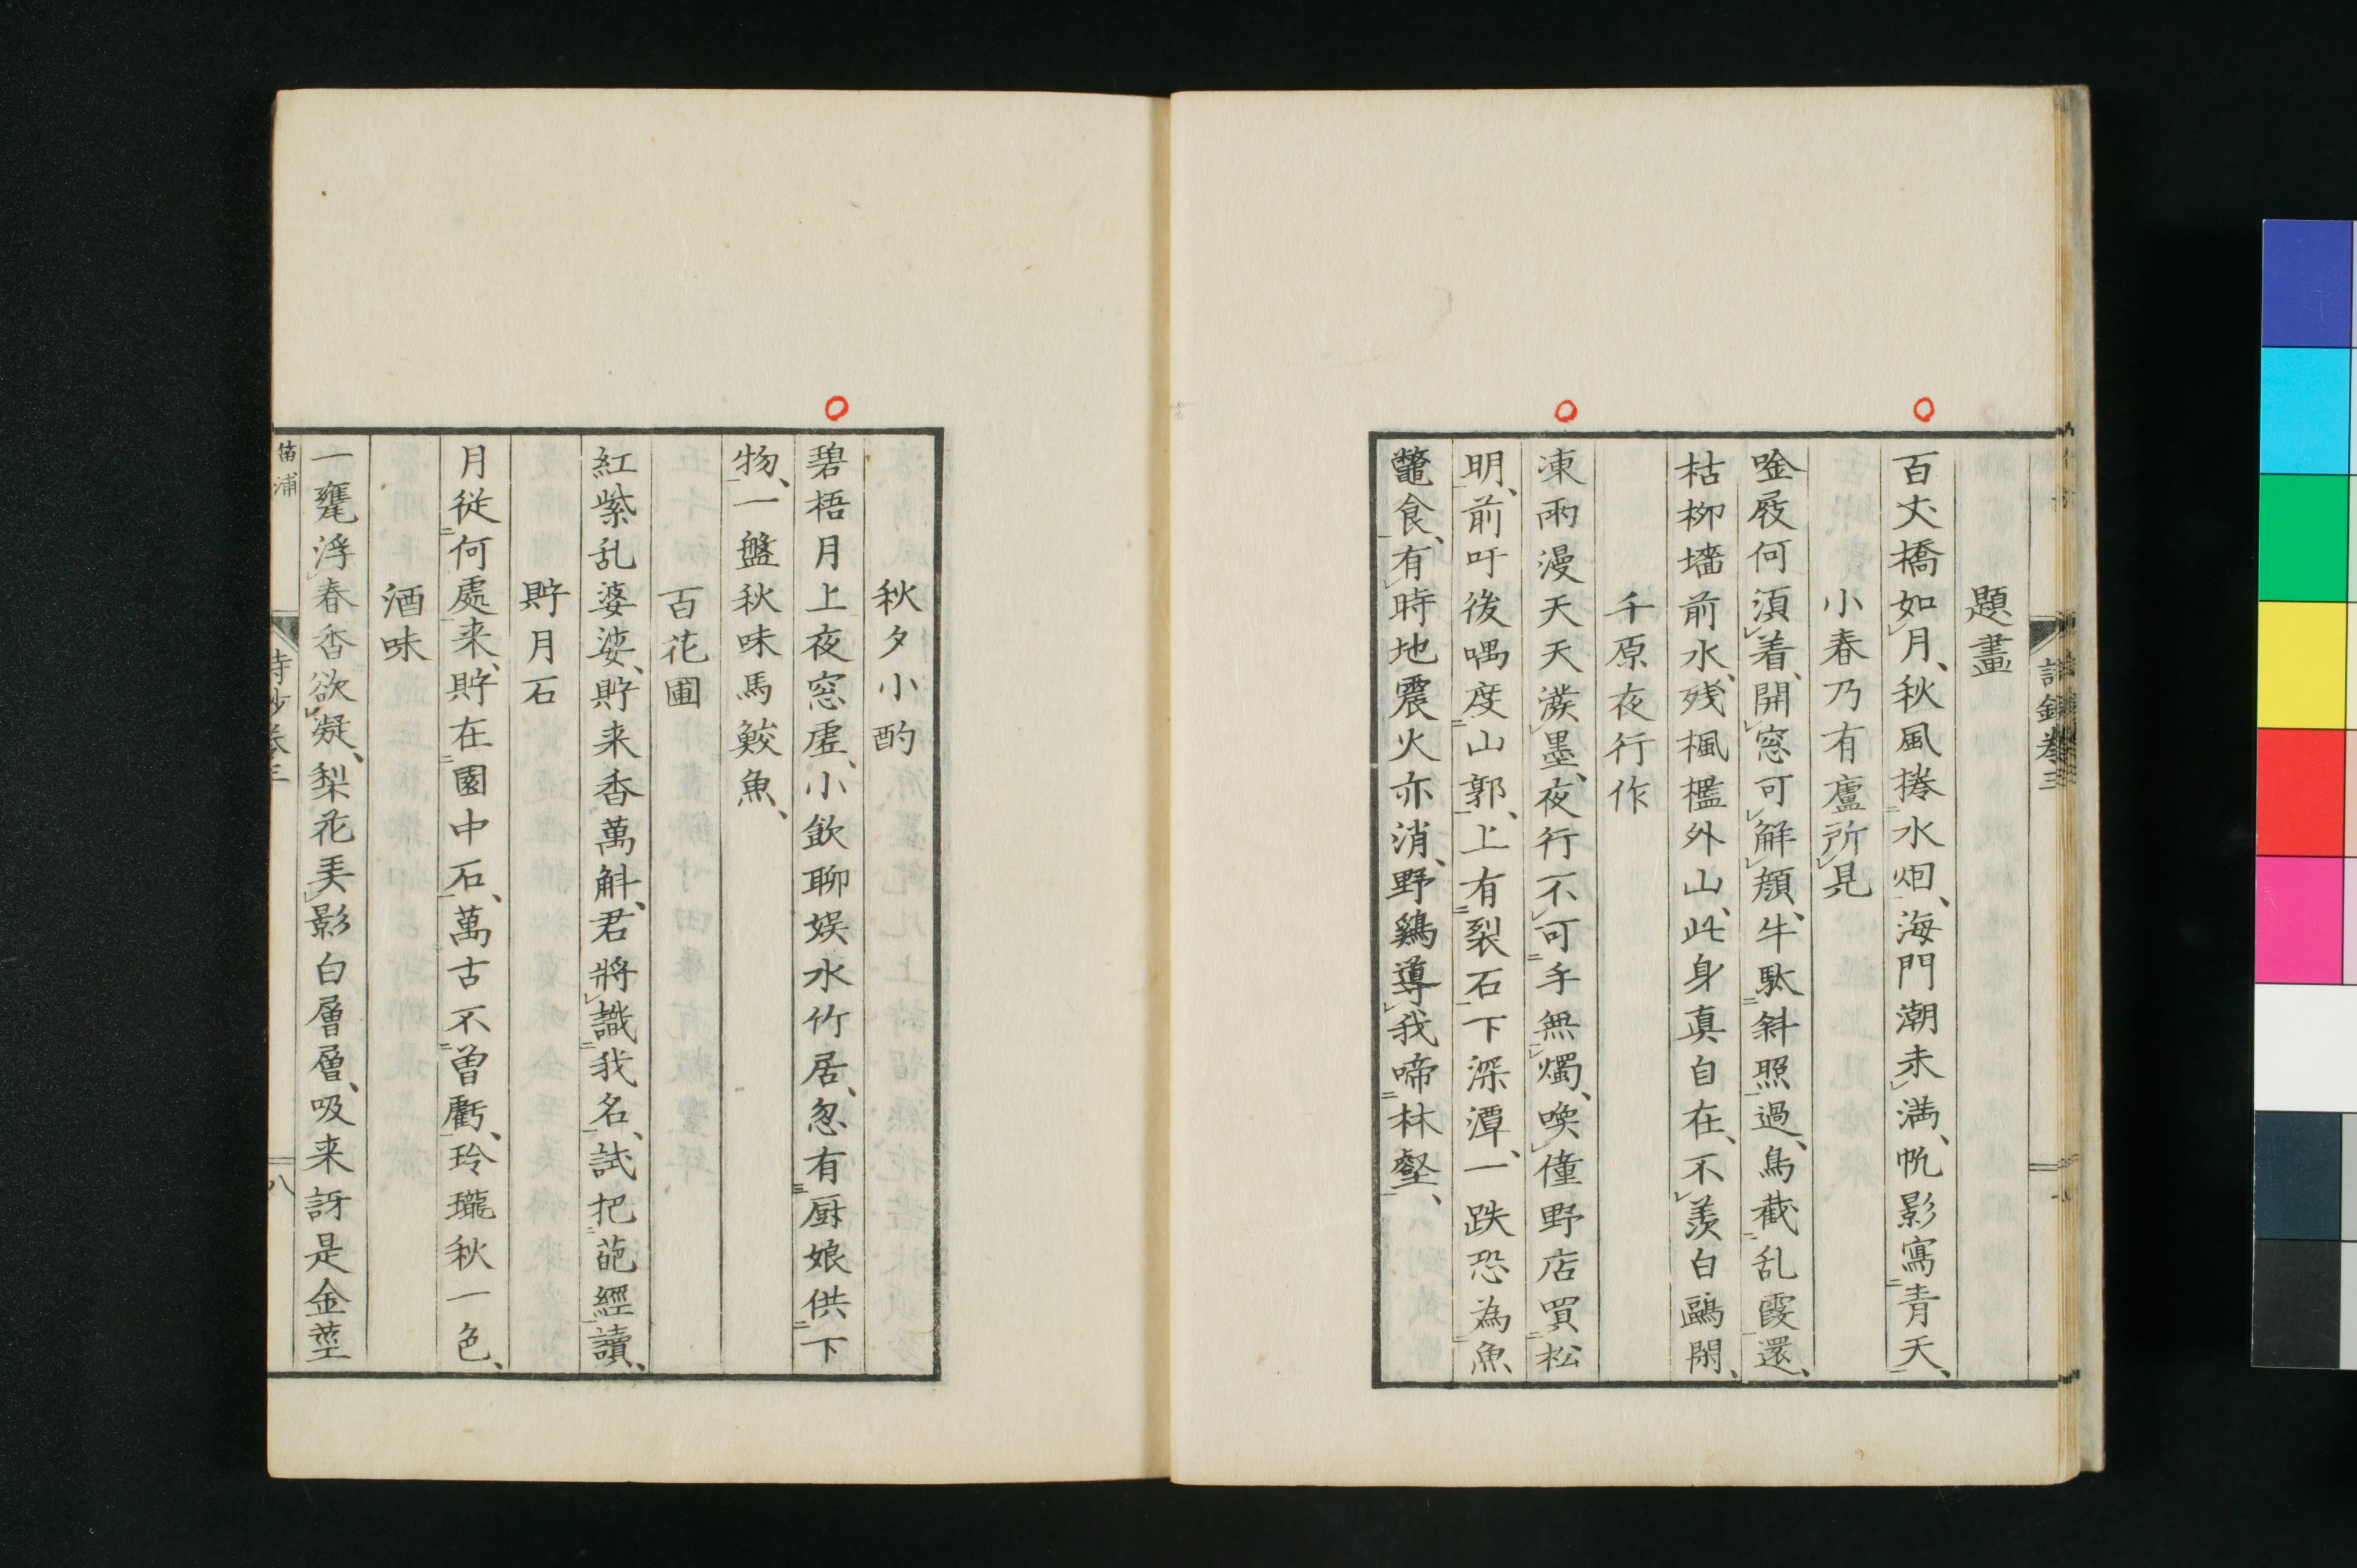 題畫
百丈橋如月、秋風捲水烟、海門潮未満、帆影寫青天、
小春乃有廬所見
唫屐何湏着、開窓可觧顔、牛駄斜照過、鳥截乱霞還、
枯柳墻前水、残楓檻外山、此身真自在、不羨白鷗閑、
千原夜行作
凍雨漫天天潑墨、夜行不可手無燭、喚僮野店買松
明、前吁後喁度山郭、上有裂石下深潭、一跌恐為魚
鼈食、有時地震火亦消、野鷄導我啼林壑、
詩鈔卷三
秋夕小酌
碧梧月上夜窓虚、小飲聊娯水竹居、忽有厨娘供下
物、一盤秋味馬鮫魚、
百花圃
紅紫乱婆娑、貯来香萬斛、君將識我名、試把葩經讀、
貯月石
月従何處来、貯在園中石、萬古不曽虧、玲瓏秋一色、
酒味
一甕浮春香欲凝、梨花美影白層層、吸来訝是金莖
菑浦
詩鈔卷三
八